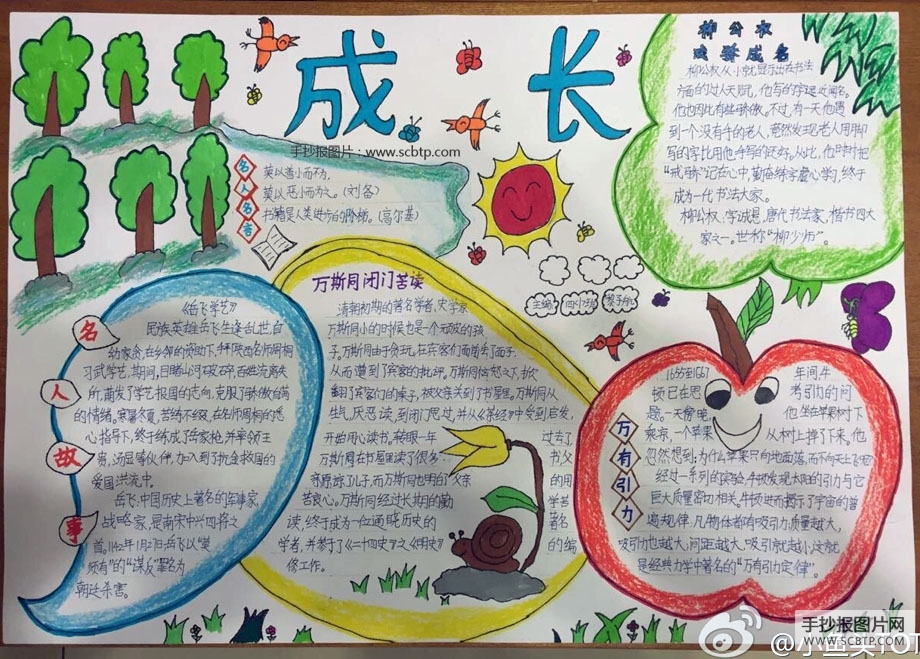 成长
手抄报图片：www.scbtp.com
名人名言
莫以善小而不为，
莫以恶小而为之。(刘备)
书籍是人类进步的阶梯。(高尔基)
柳公权
戒骄成名
柳公权从小就显示出在书法
方面的过人天赋，他写的字远近闻名。
他也因此有些骄傲。不过，有一天他遇
到一个没有手的老人，竟然发现老人用脚
写的字比用他手写的还好。从此，他时时把
“戒骄”记在心中，勤奋练字，虚心学习，终于
成为一代书法大家。
柳公权、字诚悬，唐代书法家、楷书四大
家之一。世称“柳少师”。
主编
名人故事
《岳飞学艺》
民族英雄岳飞生逢乱世，自
幼家贫，在乡邻的资助下，拜陕西名师周桐
习武学艺，期间，目睹山河破碎，百姓流离失
所，萌发了学艺报国的志向，克服了骄傲自满
的情绪。寒暑冬夏，苦练不缀，在名师周桐的悉
心指导下，终于练成了岳家枪，并率领王
贵，汤显等伙伴，加入到了抗金救国的
爱国洪流中。
岳飞，中国历史上著名的军事家，
战略家，是南宋中兴四将之
首。1142年1月27日岳飞以“莫
须有”的“谋反”罪名为
朝廷杀害。
万斯同闭门苦读
清朝初期的著名学者、史学家
万斯同小的时候也是一个顽皮的孩
子。万斯同由于贪玩，在宾客们面前丢了面子，
从而遭到了宾客的批评。万斯同愤怒之下，掀
翻了宾客们的桌子，被父亲关到了书屋里。万斯同从
生气，厌恶读，到闭门思过，并从《茶经》中受到启发，
开始用心读书。转眼一年过去了，
万斯同在书屋里读了很多书父
亲原谅了儿子，而万斯同也明白父亲的用
苦良心。万斯同经过长期的勤学苦
读，终于成为一位通晓历史的著名
学者，并参与了《二十四史》之《明史》的编
修工作。
万有引力
1665到1667年间，牛
顿已在思考引力的问
题。一天傍晚，他坐在苹果树下
乘凉，一个苹果从树上掉了下来。他
忽然想到：为什么苹果只向地面落，而不向天上飞呢？
经过一系列的实验，牛顿发现太阳的引力与它
巨大质量密切相关。牛顿进而揭示了宇宙的普
遍规律：凡物体者有吸引力；质量越大，
吸引力也越大；间距越大，吸引就越小。这就
是经典力学中著名的“万有引力定律”。
手抄报图片网
WWW.SCBTP.COM